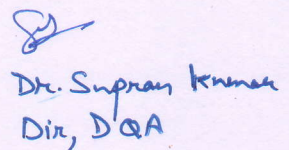 Dr. Supran Kumar
Dir, DQA